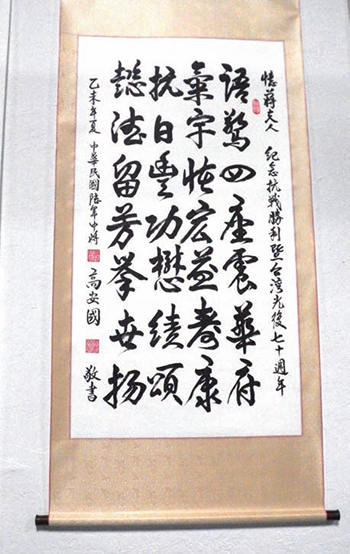 憶蔣夫人 紀念抗戰勝利暨台灣光復七十週年
語驚四座震華府
氣宇恢宏益壽康
抗日豐功懋績頌
懿德留芳舉世揚
乙未年夏 中華民國陸軍中將 高安國 敬書